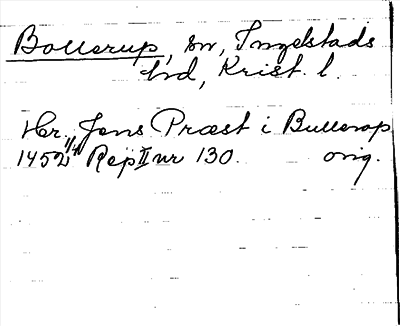 Bollerup, sn, Ingelstads
hd, Krist. l.
Hr. Jens Præst i Bullerop
1452 1/4 Rep II nr 130. orig.